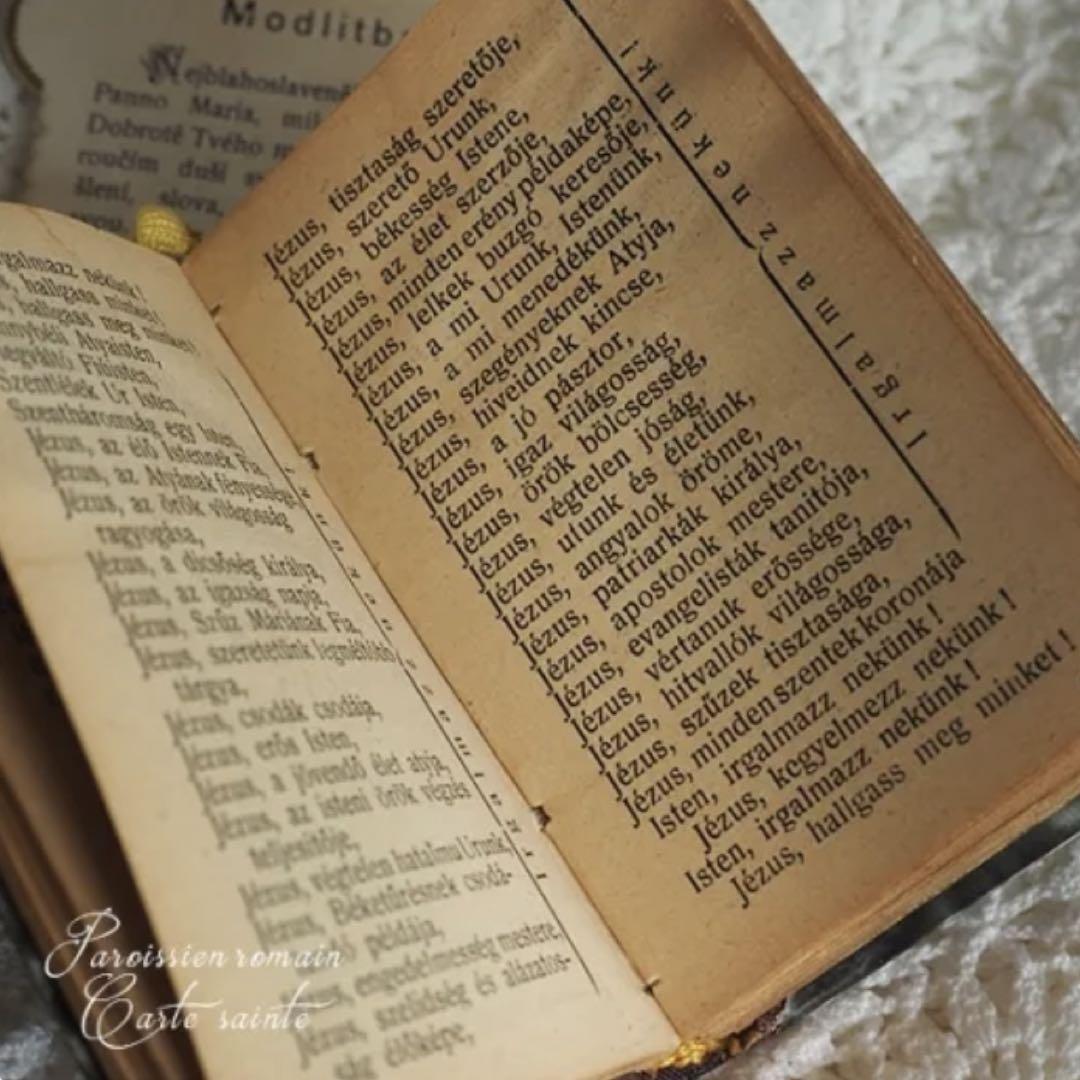 Modlitb
Nejblahoslaven
Panno Maria, mil
Dobrotě Tvého m
roučím duši
šlení, slova,
galmazz nekünk!
hallgass minket!
hallgass meg minket!
nnybéli Atyaisten,
egváltó Fiúisten,
Szentlélek Úr Isten,
Szentháromság egy Isten,
Jézus, az élő Istennek Fia,
Jézus, az Atyának fényessége
Jézus, az örök világosság
ragyogása,
Jézus, a dicsőség királya,
Jézus, az igazság napja,
Jézus, Szűz Máriának Fia,
Jézus, szeretetünk legméltóbb
tárgya,
Jézus, csodák csodája,
Jézus, erős Isten,
Jézus, a jövendő élet atyja,
Jézus, az isteni örök végzés
teljesítője,
Jézus, végtelen hatalmu Urunk,
Jézus, Béketűrésnek csodá-
példája,
engedelmesség mestere,
Jézus, szelidség és alázatos-
ság élőképe,
Jézus, tisztaság szeretője,
Jézus, szerető Urunk,
Jézus, békesség Istene,
Jézus, az élet szerzője,
Jézus, minden erény példaképe,
Jézus, lelkek buzgó keresője,
Jézus, a mi Urunk, Istenünk,
Jézus, a mi menedékünk,
Jézus, szegényeknek Atyja,
Jézus, hiveidnek kincse,
Jézus, a jó pásztor,
Jézus, igaz világosság,
Jézus, örök bölcsesség,
Jézus, végtelen jóság,
Jézus, utunk és életünk,
Jézus, angyalok öröme,
Jézus, patriarkák királya,
Jézus, apostolok mestere,
Jézus, evangelisták tanitója,
Jézus, vértanuk erőssége,
Jézus, hitvallók világossága,
Jézus, szűzek tisztasága,
Jézus, minden szentek koronája
Irgalmazz nekünk!
Isten, irgalmazz nekünk!
Jézus, kegyelmezz nekünk!
Isten, irgalmazz nekünk!
Jézus, hallgass meg minket!
Paroissien romain
Carte sainte